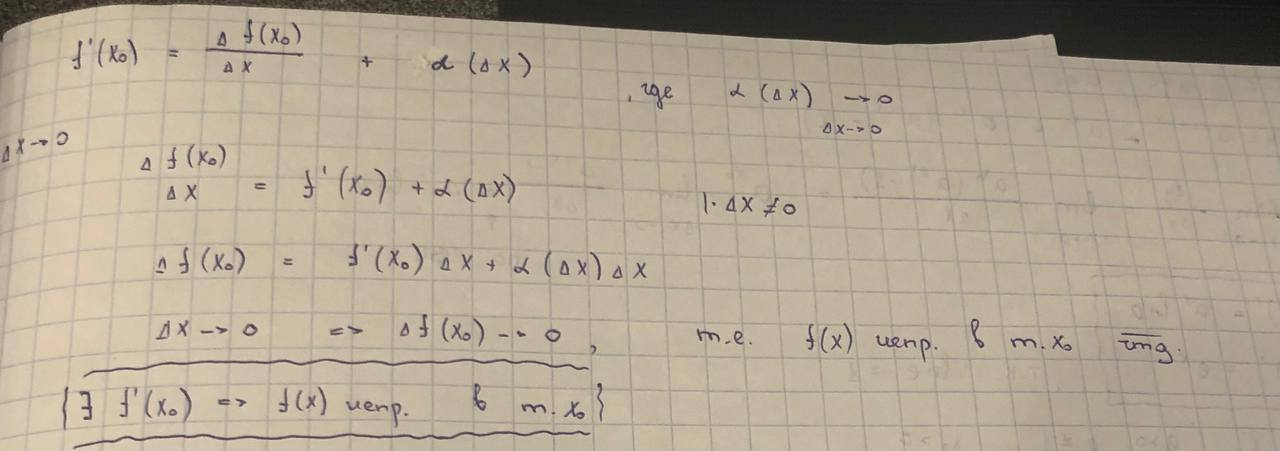 f'(x₀) = Δ f(x₀) / Δx + α(Δx)
, где α(Δx) → 0
Δx→0
Δx→0
Δ f(x₀) / Δx = f'(x₀) + α(Δx) |· Δx ≠ 0
Δ f(x₀) = f'(x₀) Δx + α(Δx) Δx
Δx → 0 => Δf(x₀) → 0, т.е. f(x) непр. в т. x₀
{∃ f'(x₀) => f(x) непр. в т. x₀}